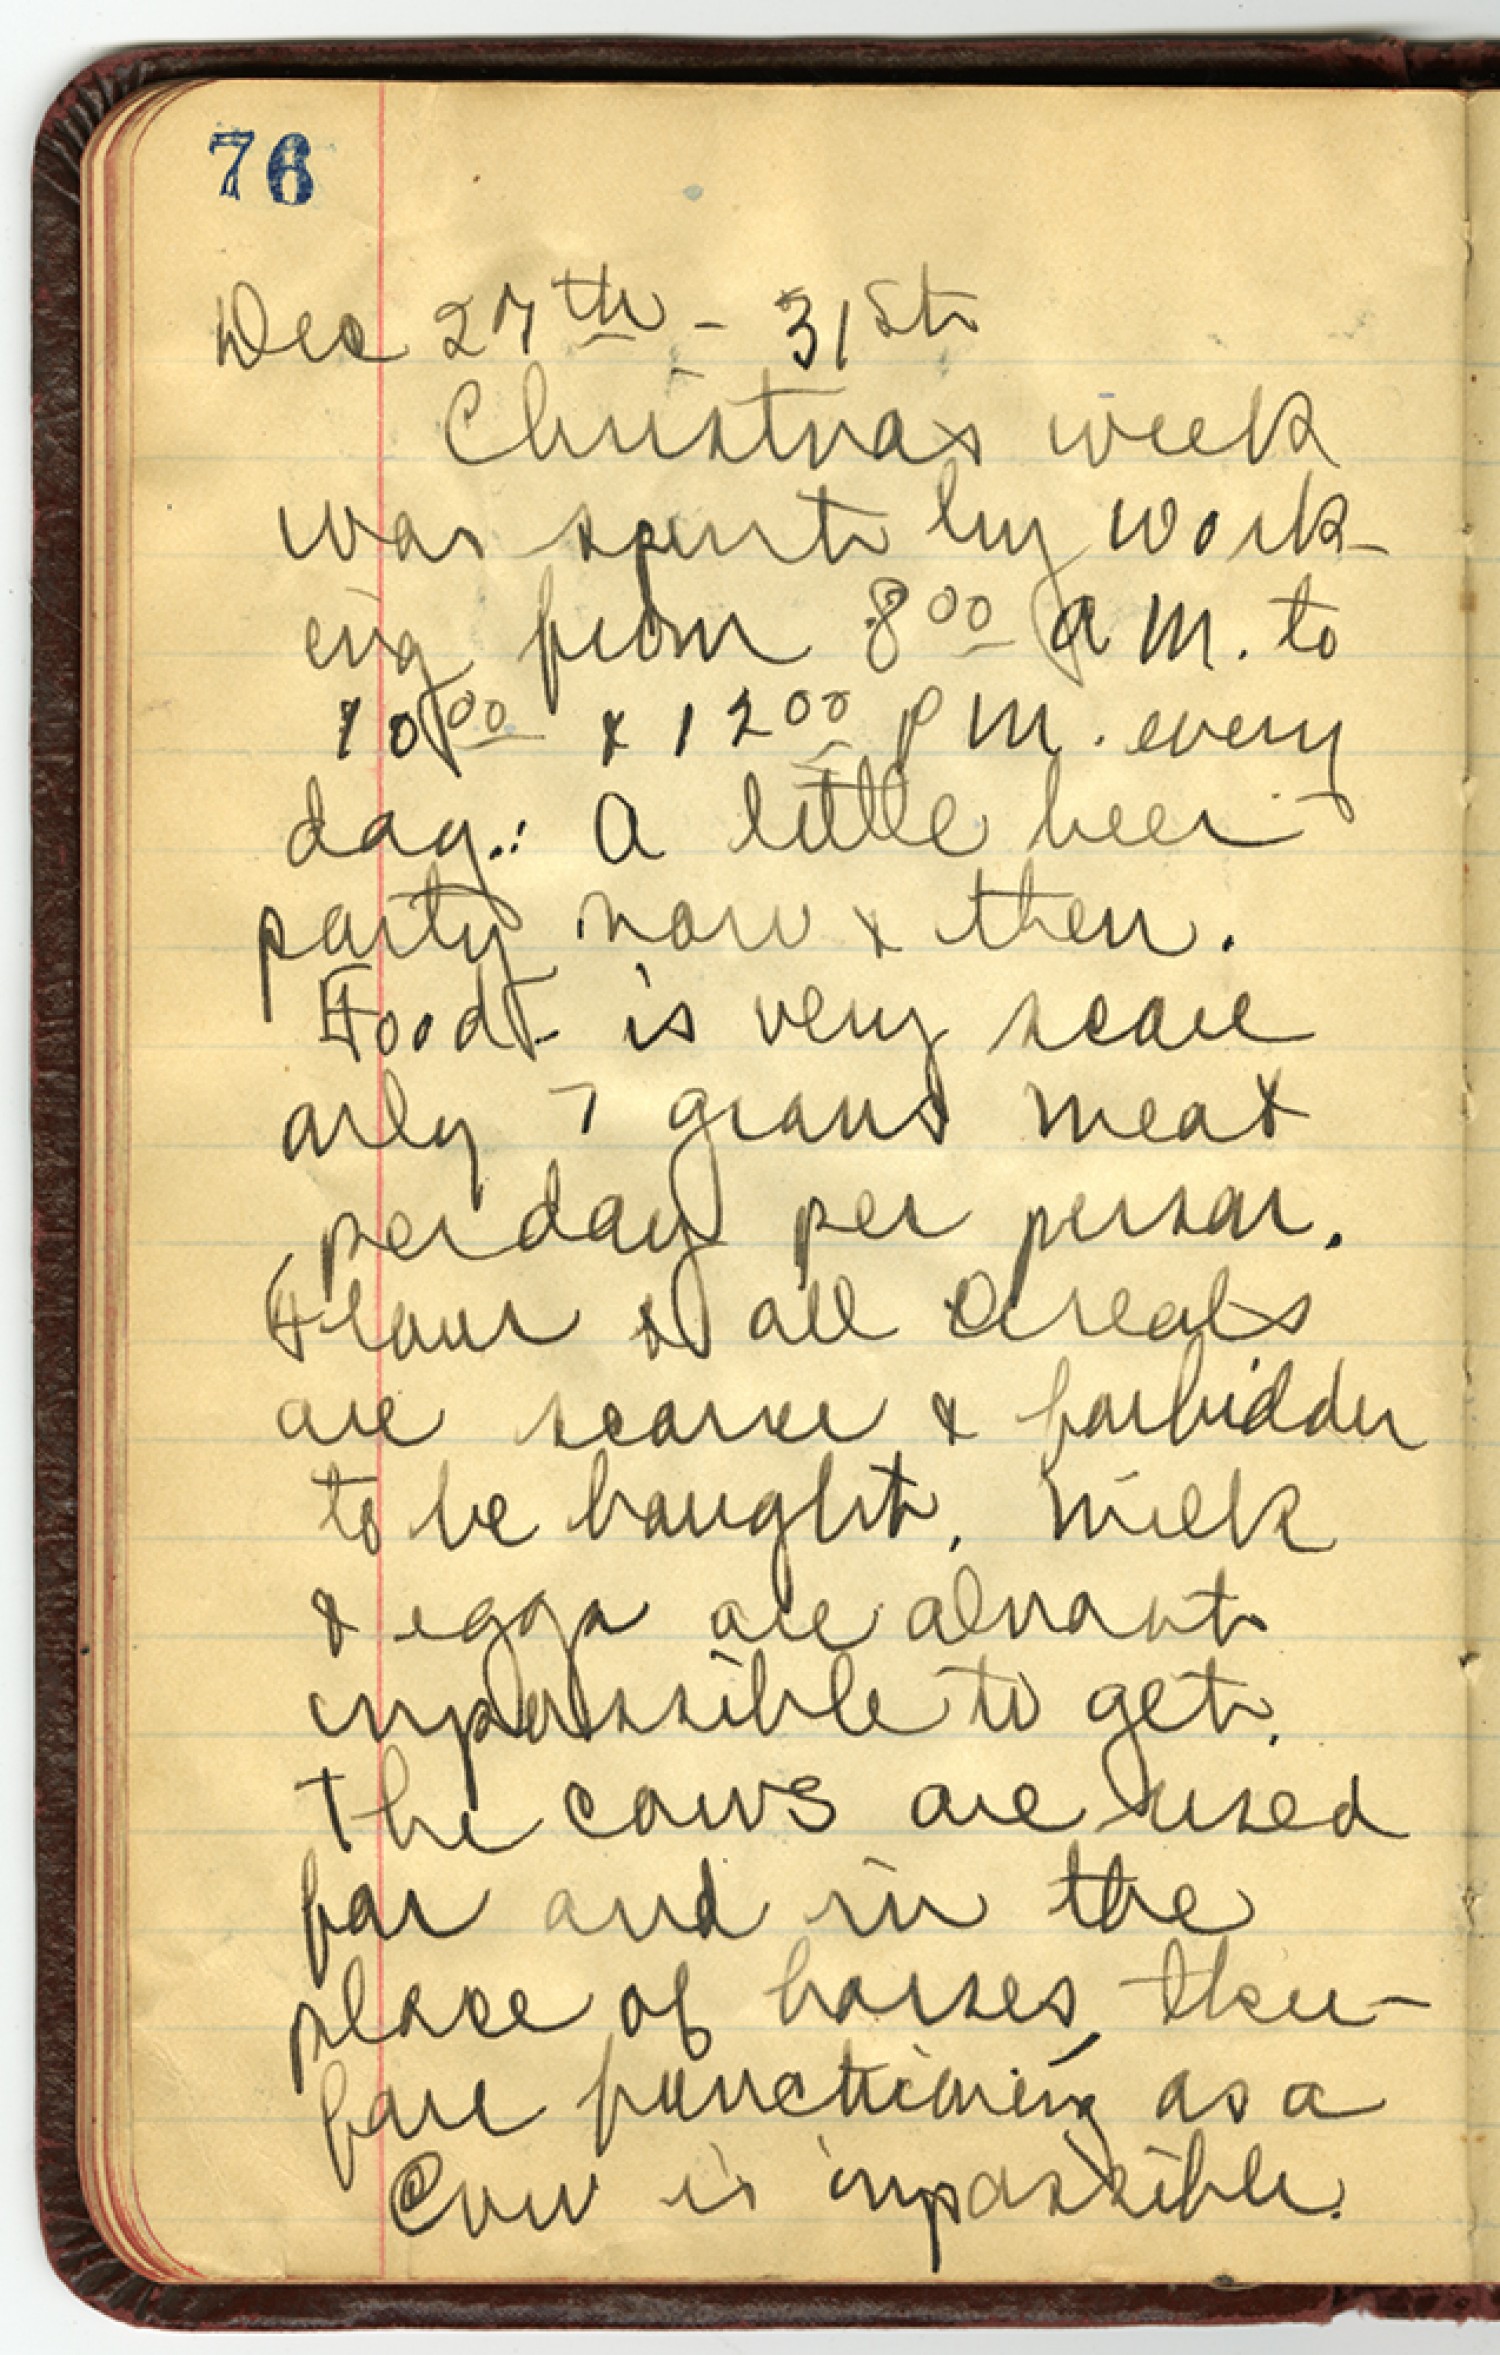 76
Dec 27th - 31st
Christmas week
was spent by work-
ing from 8 00 A M. to
10 00 & 12 00 P M. every
day. A little beer
party now & then.
Food is very scare
only 7 grams meat
per day per person.
Flour & all Cereals
are scarce & forbidden
to be bought. Milk
& eggs are almost
impossible to get.
The cows are used
for and in the
place of horses, there-
fore functioning as a
Cow is impossible.